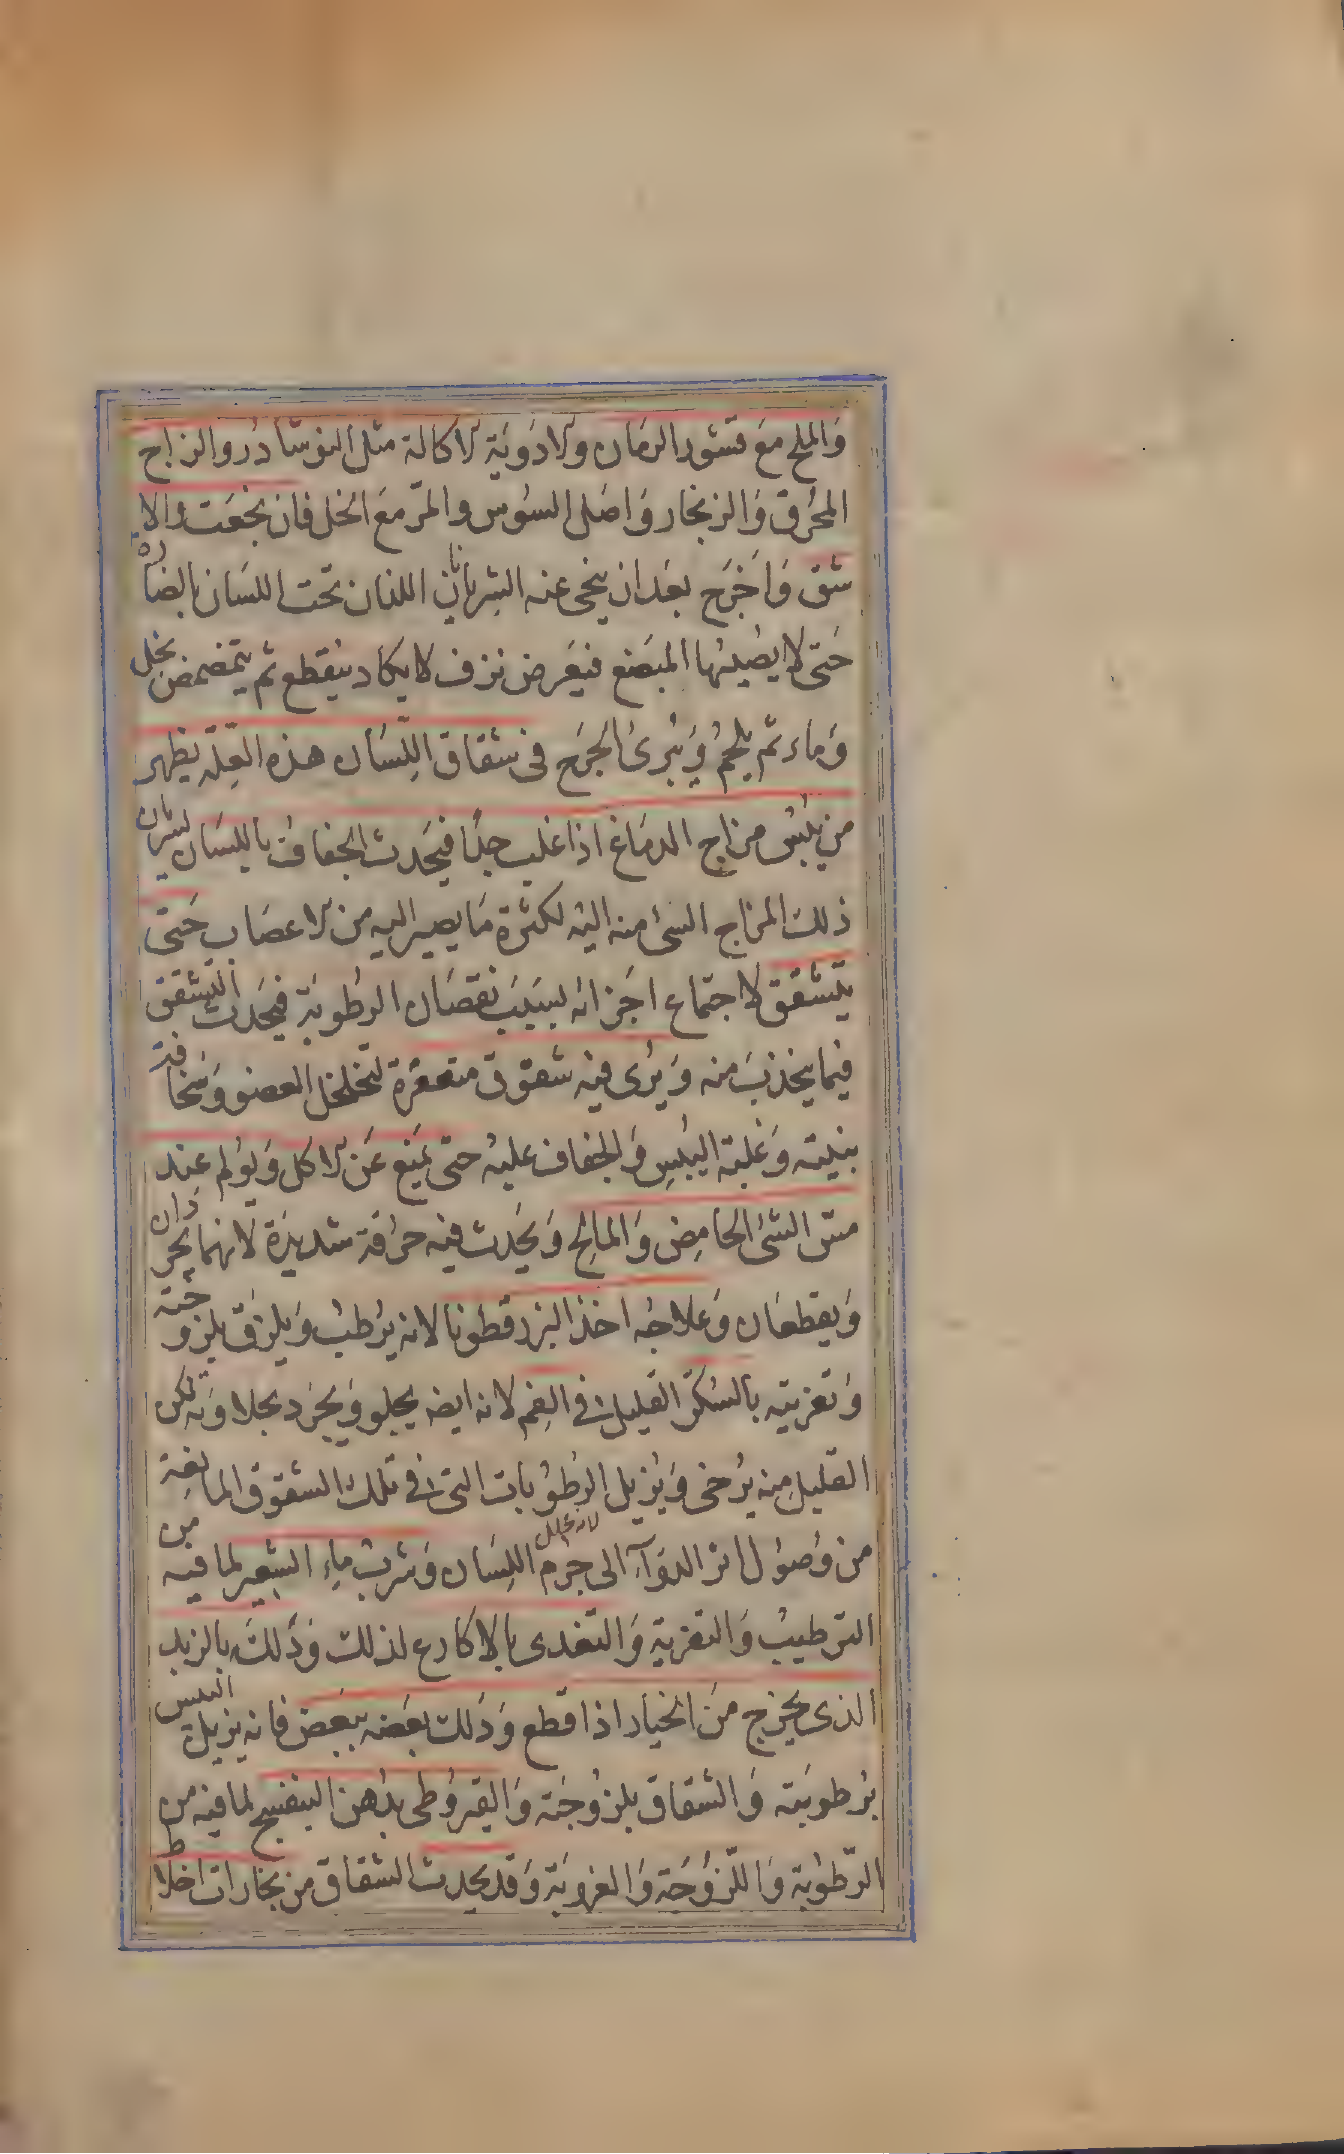 والملح مع قشور الرمان والادوية الاكالة مثل النوشادر والزاج
المحرق والزنجار واصل السوس والمر مع الخل فان نجعت والا
شق واخرج بعد ان ينحى عنه الشريانان اللذان تحت اللسان بالصنارة
حتى لا يصيبهما المبضع فيعرض نزف لا يكاد ينقطع ثم يتمضمض بخل
وماء ثم يلحم ويبرئ الجرح فى شقاق اللسان هذه العلة يظهر
من يبس مزاج الدماغ اذا غلب جدا فيحدث الجفاف باللسان لسريان
ذلك المزاج السئ منه اليه لكثرة ما يصير اليه من الاعصاب حتى
يتشقق لاجتماع اجزائه بسبب نقصان الرطوبة فيحدث التشقق
فيما ينجذب منه ويرى فيه شقوق متقعرة لتخلخل العضو وسخافة
بنيته وغلبة اليبس والجفاف عليه حتى يمنع عن الاكل ويولم عند
مس الشئ الحامض والمالح ويحدث فيه حرقة شديدة لانهما يحردان
ويقطعان وعلاجه اخذ البزرقطونا لانه يرطب ويلزق بلزوجته
وتغريته بالسكر القليل فى الفم لانه ايضه يجلو ويجرد بجلاوته لكن
القليل منه يرخى ويزيل الرطوبات التى فى تلك الشقوق المانعة
من وصول اثر الدواء الى جرم اللسان وشرب ماء الشعير لما فيه من
لانه يحلل
الترطيب والتغرية والتغذى بالاكارع لذلك ودلك بالزبد
الذى يخرج من الخيار اذا قطع ودلك بعضه ببعض فانه يزيل اليبس
برطوبته والشقاق بلزوجته والقيروطى بدهن البنفسج لما فيه من
الرطوبة واللزوجة والغروية وقد يحدث الشقاق من بخارات اخلاط